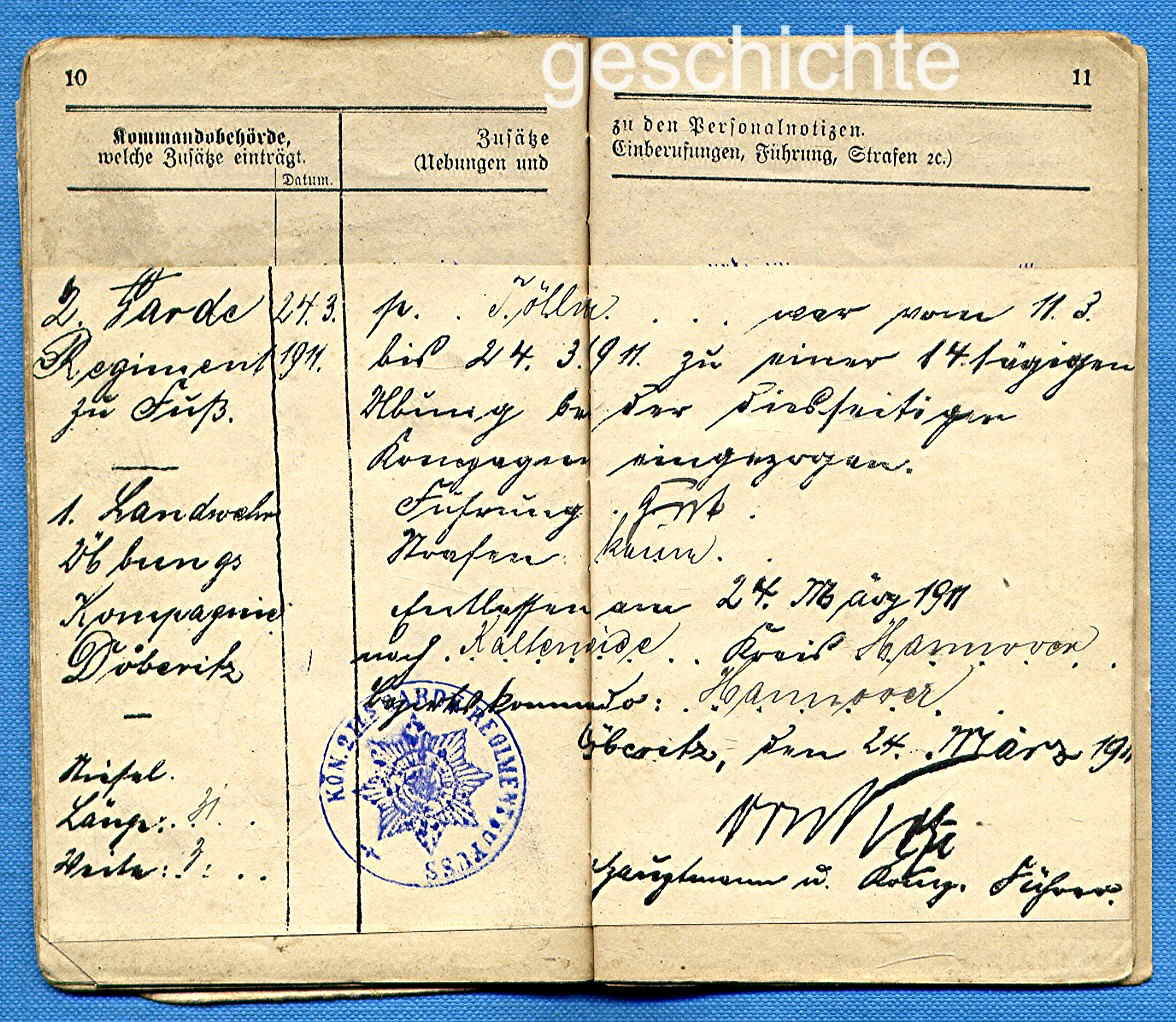 geschichte
10
11
Kommandobehörde,
welche Zusätze einträgt.
Datum.
Zusätze
(Uebungen und
zu den Personalnotizen.
Einberufungen, Führung, Strafen ꝛc.)
2. Garde
Regiment
zu Fuß.
1. Landwehr
Übungs
Kompagnie
Döberitz
Stiefel.
Länge: 31
Weite: 3.
24.3.
1911.
p. . . . . war vom 11. 3.
bis 24. 3. 1911. zu einer 14 tägigen
Übung bei der diesseitigen
Kompagnie eingezogen.
Führung . Gut .
Strafen: keine.
Entlassen am 24. März 1911
nach Kaltenweide . . Kreis Hannover . .
Bezirkskommando: Hannover
Döberitz, den 24. März 1911
Hauptmann u. Komp. Führer.
KÖN. 2TES GARDE REGIMENT ZU FUSS